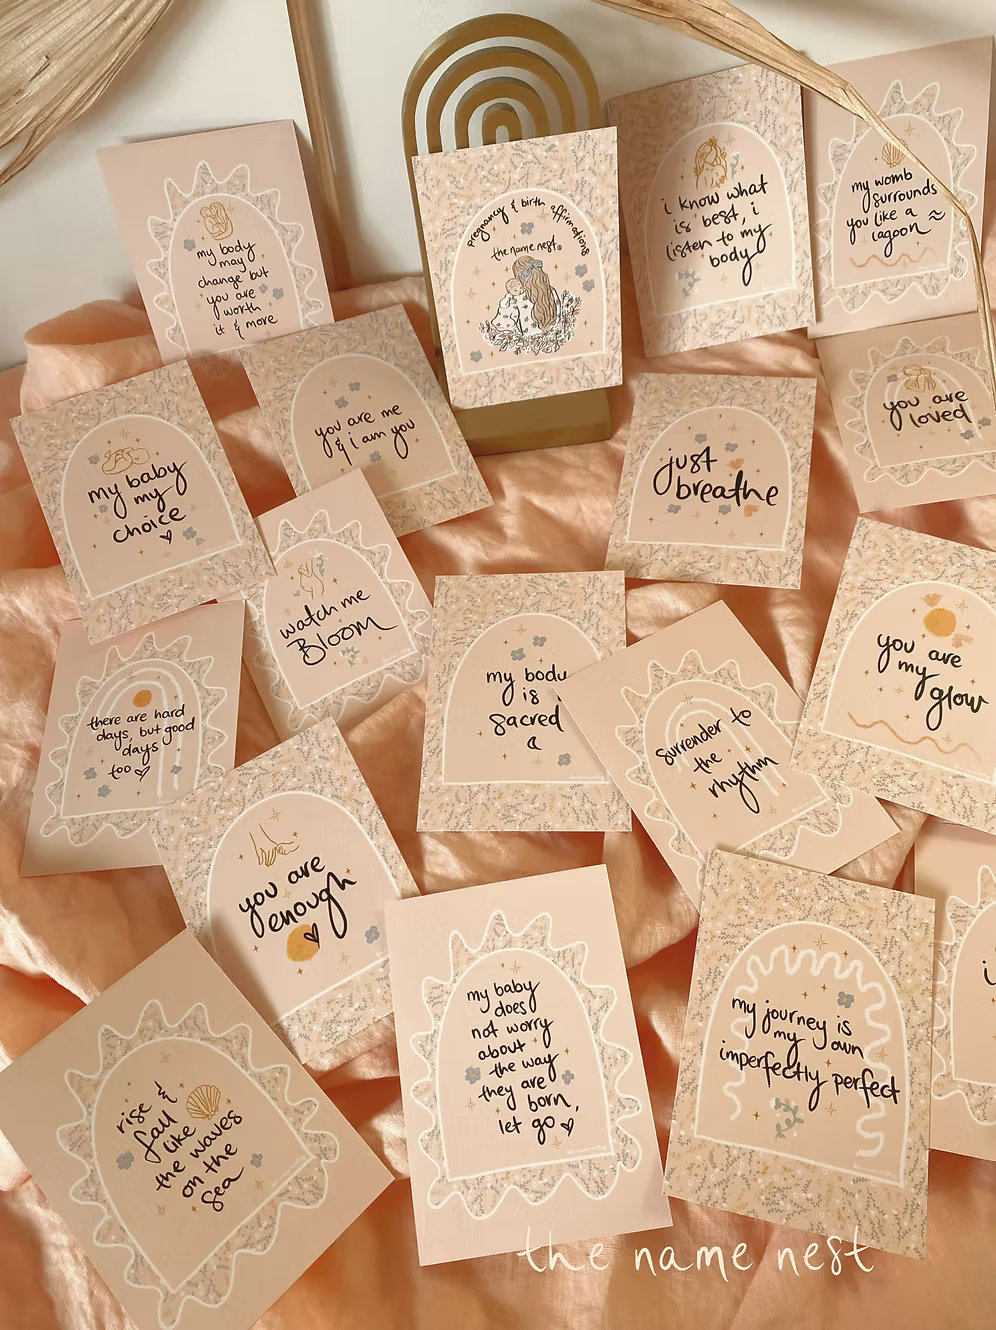 my body
may
change but
you are
worth
it & more
pregnancy & birth affirmations
the name nest
i know what
is best, i
listen to my
body
my womb
surrounds
you like a
lagoon
my baby
my
choice
you are me
& i am you
just
breathe
you are
loved
watch me
Bloom
there are hard
days, but good
days
too
my body
is
sacred
surrender to
the
rhythm
you are
my
glow
you are
enough
rise &
fall
like
the waves
on the
sea
my baby
does
not worry
about
the way
they are
born,
let go
my journey is
my own
imperfectly perfect
the name nest